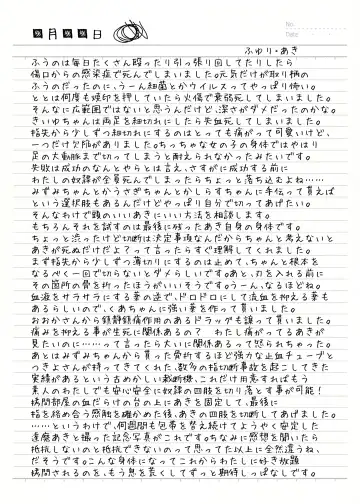 月　日
No.
Date
ふゅり・あき
ふうのは毎日たくさん殴ったり引っ張り回してたりしたら
傷口からの感染症で死んでしまいました。元気だけが取り柄の
ふうだったのに、うーん細菌とかウイルスってやっぱり怖い。
ととは何度も焼印を押していたら火傷で衰弱死してしまいました。
そんなに広範囲ではないと思うんだけど、深さがダメだったのかな。
きいゆちゃんは両足を細切れにしたら失血死してしまいました。
指先から少しずつ細切れにするのはとっても痛がって可愛いけど、
一つだけ欠陥がありました。ちっちゃな女の子の身体ではやはり
足の大動脈まで切ってしまうと耐えられなかったみたいです。
失敗は成功のなんとやらとは言え、さすがに成功する前に
わたしの奴隷が全員死んでしまったらちょっと落ち込むよね……
みずみちゃんとかうさぎちゃんとかしらすちゃんに手伝って貰えば
という選択肢もあるんだけどやっぱり自分で切ってあげたい。
そんなわけで頭のいいあきにいい方法を相談します。
もちろんそれを試すのは最後に残ったあき自身の身体です。
ちょっと渋ったけど切断は決定事項なんだからちゃんと考えないと
あきが死ぬだけだよ？って言ったらすぐ理解してくれました。
まず指先から少しずつ薄切りにするのは止めて、ちゃんと根本を
なるべく一回で切らないとダメらしいです。あと、刃を入れる前に
その箇所の骨を折ったほうがいいそうです。うーん、なるほどね。
血液をサラサラにする薬の逆で、ドロドロにして流血を抑える薬も
あるらしいので、くあちゃんに強い薬を作って貰いました。
おおかさんから鎮静鎮痛作用のあるドラッグも譲って貰いました。
痛みを抑える事が生死に関係あるの？　わたし痛がってるあきが
見たいのに……って言ったら大いに関係あるって怒られちゃった。
あとはみずみちゃんから貰った骨折するほど強力な止血チューブと
つきよさんが持ってきてくれた、数多の指切断事故を起こしてきた
実績があるという古めかしい裁断機、これだけ用意すればもう
素人のわたしでも安心安全に奴隷の四肢を切り落とす事が可能！
拷問部屋の血だらけの台の上にあきを固定して、最後に
指を絡め合う感触を確かめた後、あきの四肢を切断してあげました。
……というわけで、何週間も包帯を替え続けてようやく安定した
達磨あきと撮った記念写真がこれです。ちなみに感想を聞いたら
抵抗しないのと抵抗できないのって思ってた以上に全然違うね、
だそうです。こんな身体になってこれからわたしに好き放題
拷問されるのを、もう息を荒くしてずっと期待しっぱなしです。